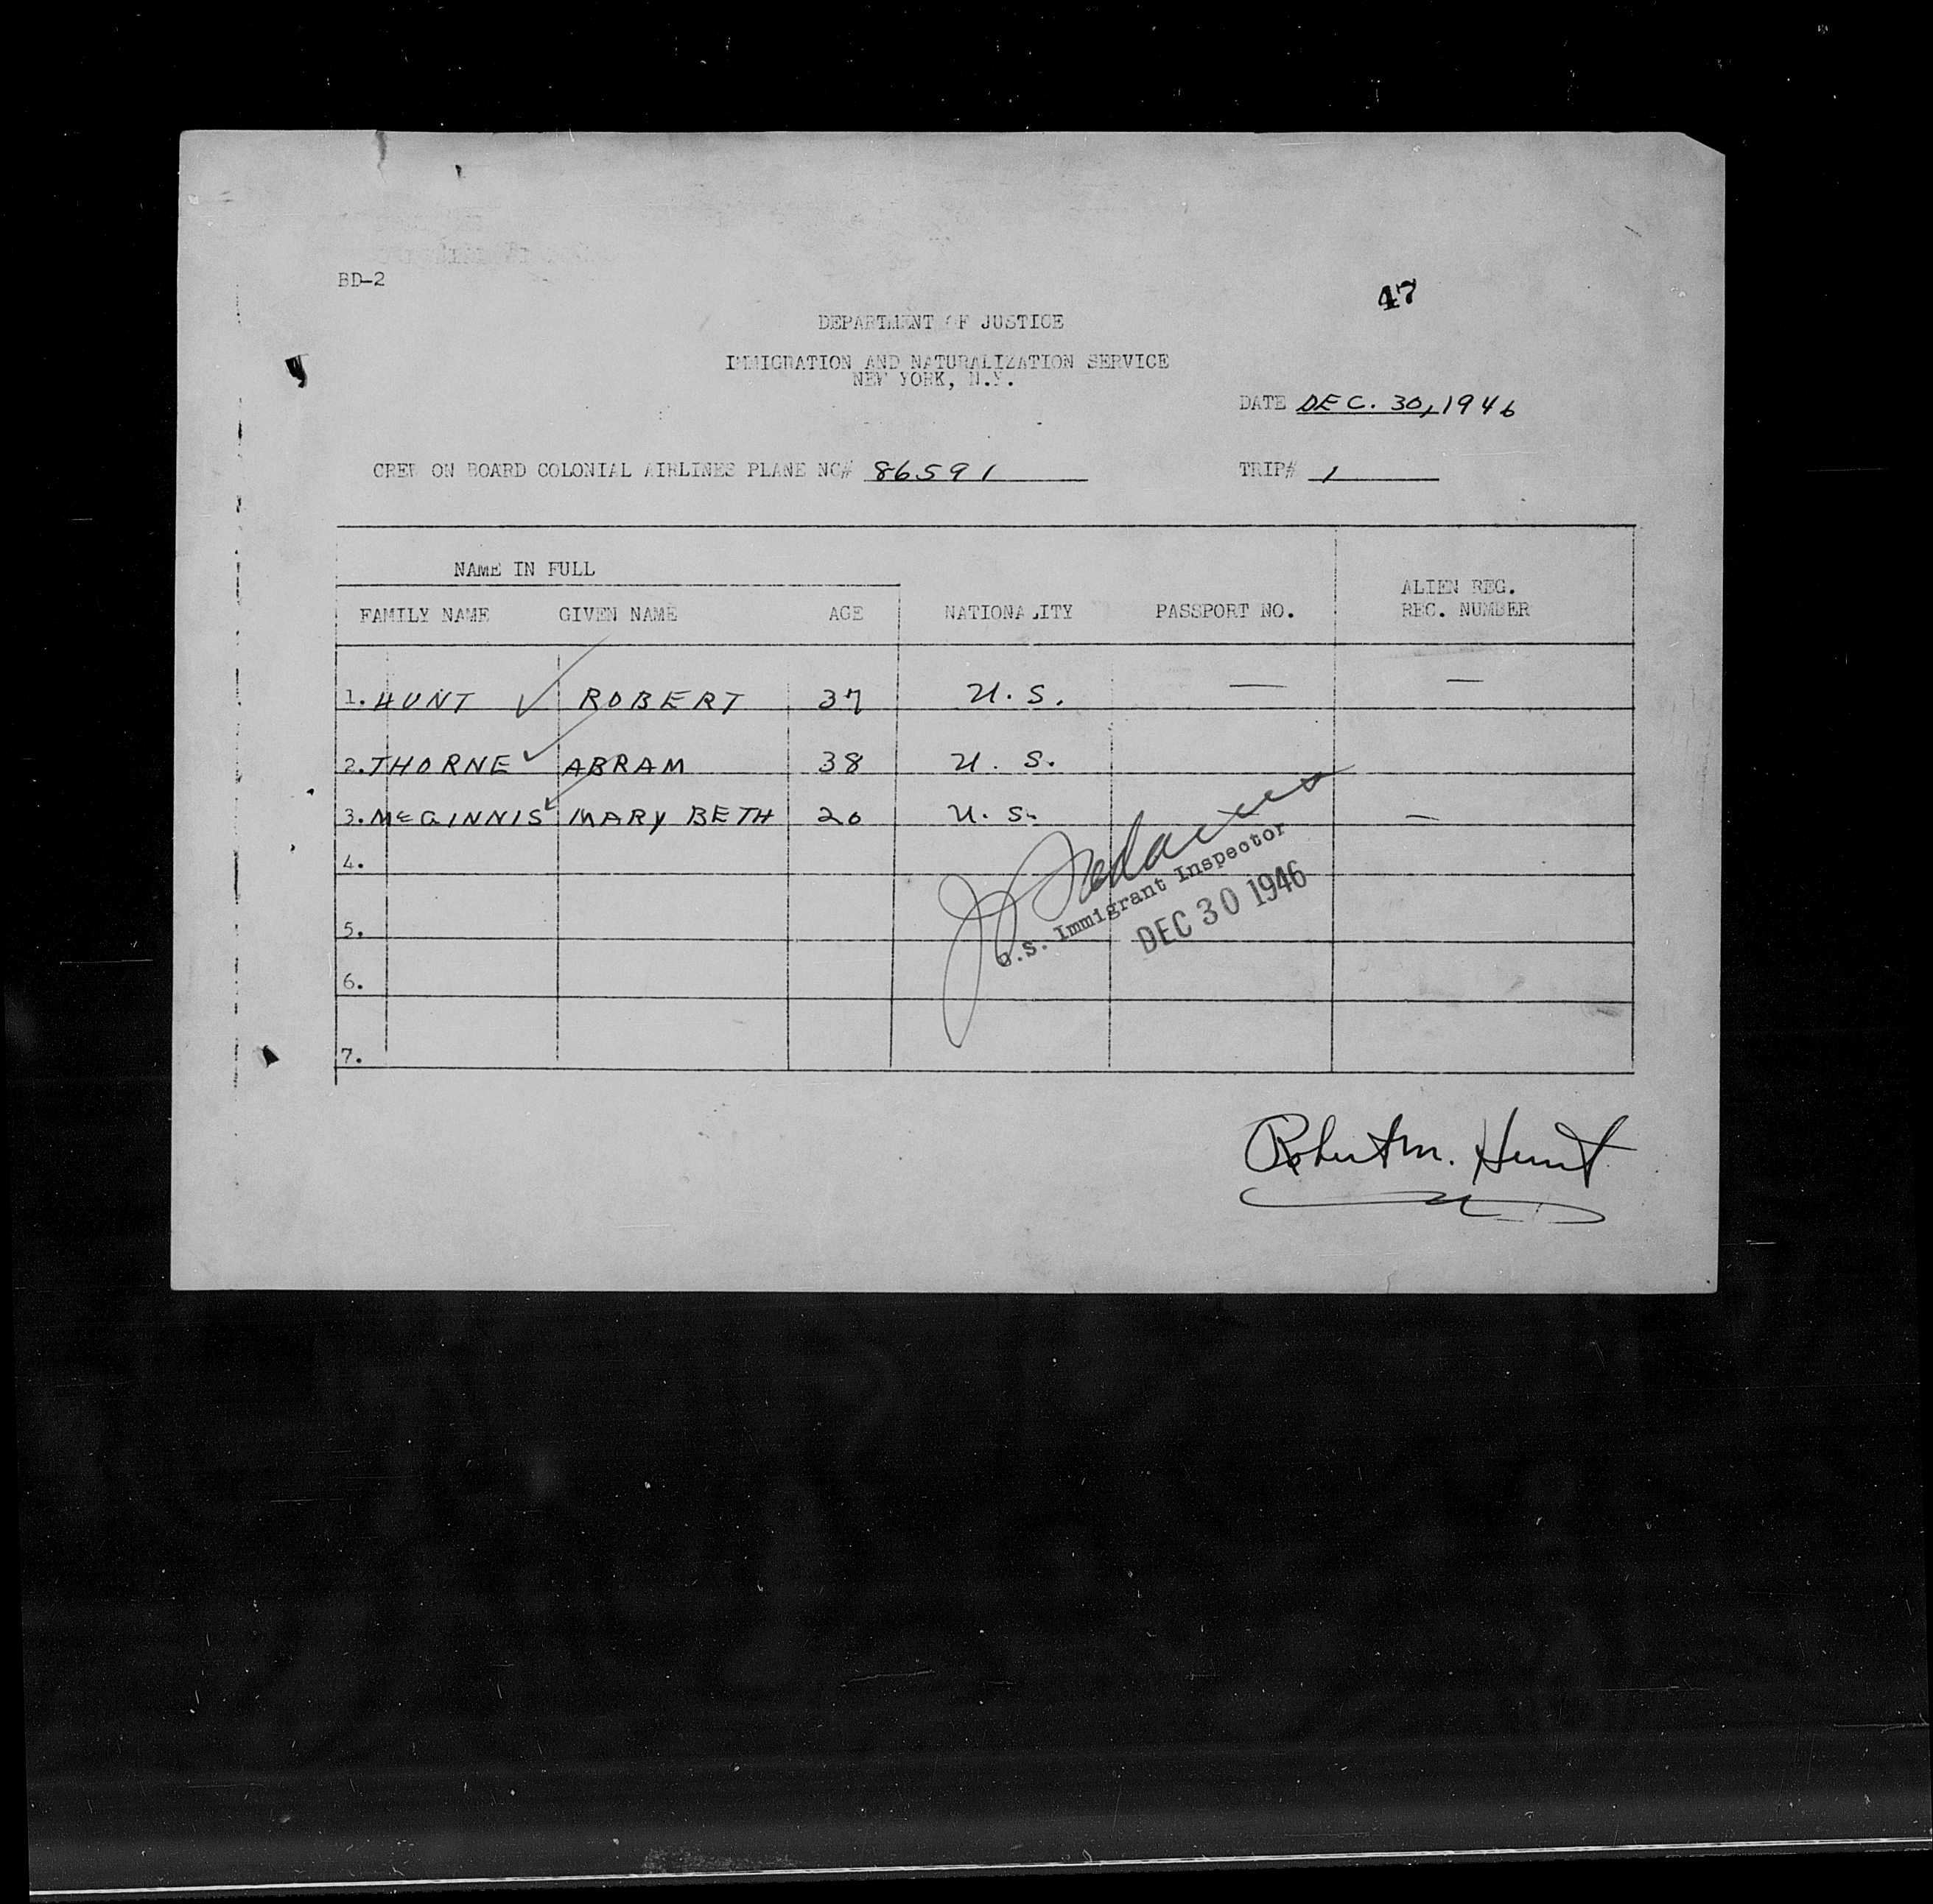 BD-2
47
DEPARTMENT OF JUSTICE
IMMIGRATION AND NATURALIZATION SERVICE
NEW YORK, N.Y.
DATE DEC. 30, 1946
CREW ON BOARD COLONIAL AIRLINES PLANE NC# 86591 TRIP# 1
NAME IN FULL
FAMILY NAME GIVEN NAME AGE NATIONALITY PASSPORT NO. ALIEN REG. REC. NUMBER
1. HUNT ✓ ROBERT 37 U.S. — —
2. THORNE ✓ ABRAM 38 U.S.
3. McGINNIS ✓ MARY BETH 20 U.S. —
4.
5.
6.
7.
U.S. Immigrant Inspector
DEC 30 1946
Robert M. Hunt